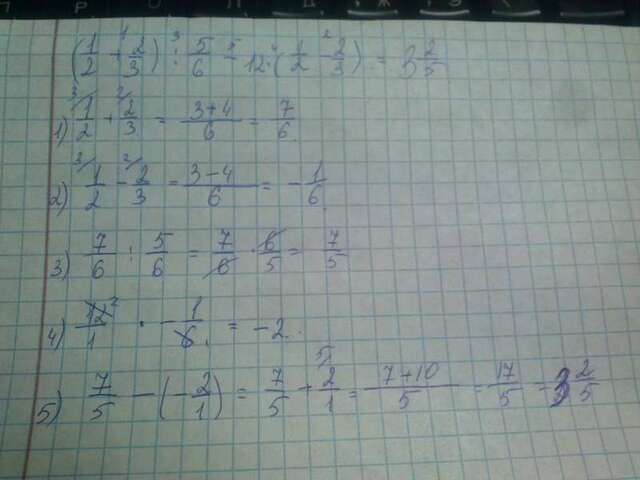 (1/2 + 2/3) : 5/6 - 12·(1/2 - 2/3) = 3 2/5
1) 1/2 + 2/3 = 3+4/6 = 7/6
2) 1/2 - 2/3 = 3-4/6 = -1/6
3) 7/6 : 5/6 = 7/6 · 6/5 = 7/5
4) 12/1 · -1/6 = -2.
5) 7/5 - (-2/1) = 7/5 + 2/1 = 7+10/5 = 17/5 = 3 2/5